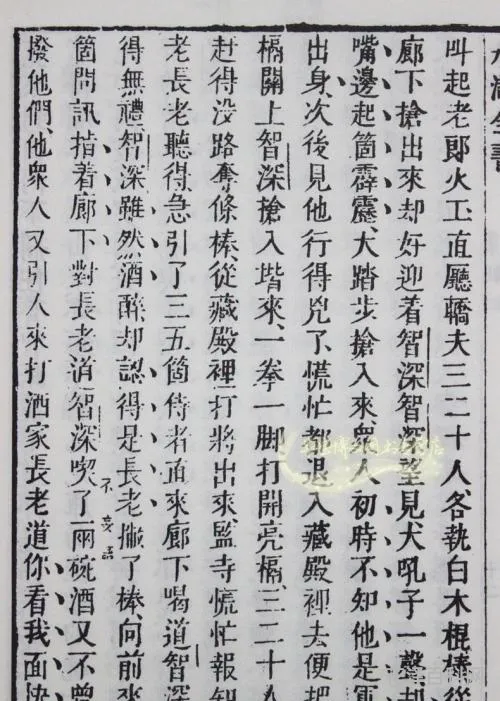 水滸全書
叫起老郎火工直廳轎夫三二十人各執白木棍棒從
廊下搶出來却好迎着智深智深望見大吼了一聲却
嘴邊起箇霹靂大踏步搶入來衆人初時不知他是軍
出身次後見他行得兇了慌忙都退入藏殿裡去便把
槅關上智深搶入堦來一拳一脚打開亮槅三二十人
赶得没路奪條棒從藏殿裡打將出來監寺慌忙報知
老長老聽得急引了三五箇侍者直來廊下喝道智深
得無禮智深雖然酒醉却認得是長老撇了棒向前來
箇問訊指着廊下對長老道智深喫了兩碗酒又不曾
不妄語
撥他們他衆人又引人來打洒家長老道你看我面快